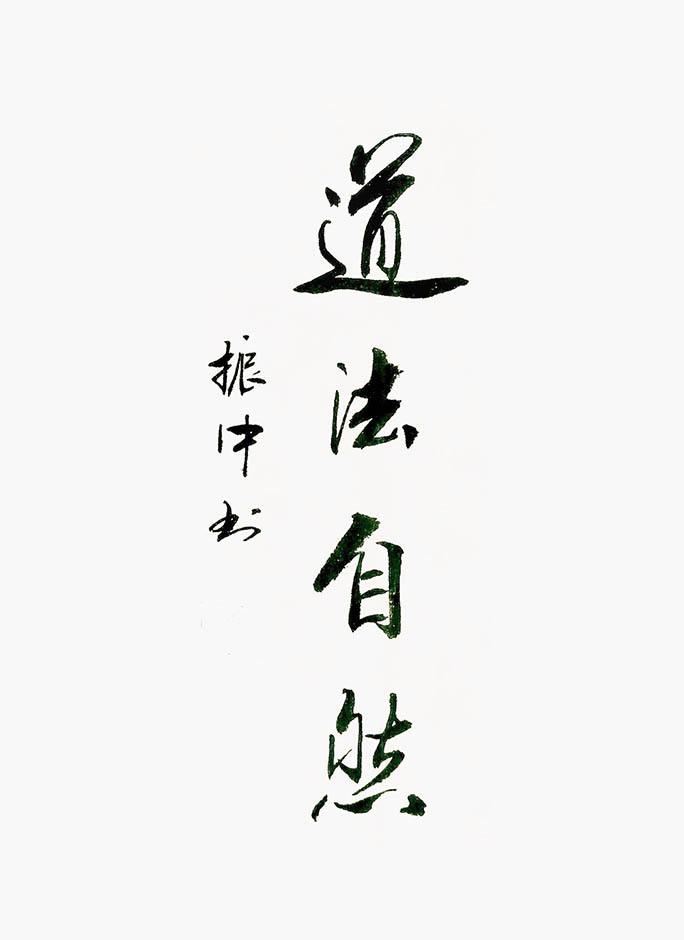 道法自然
振中书